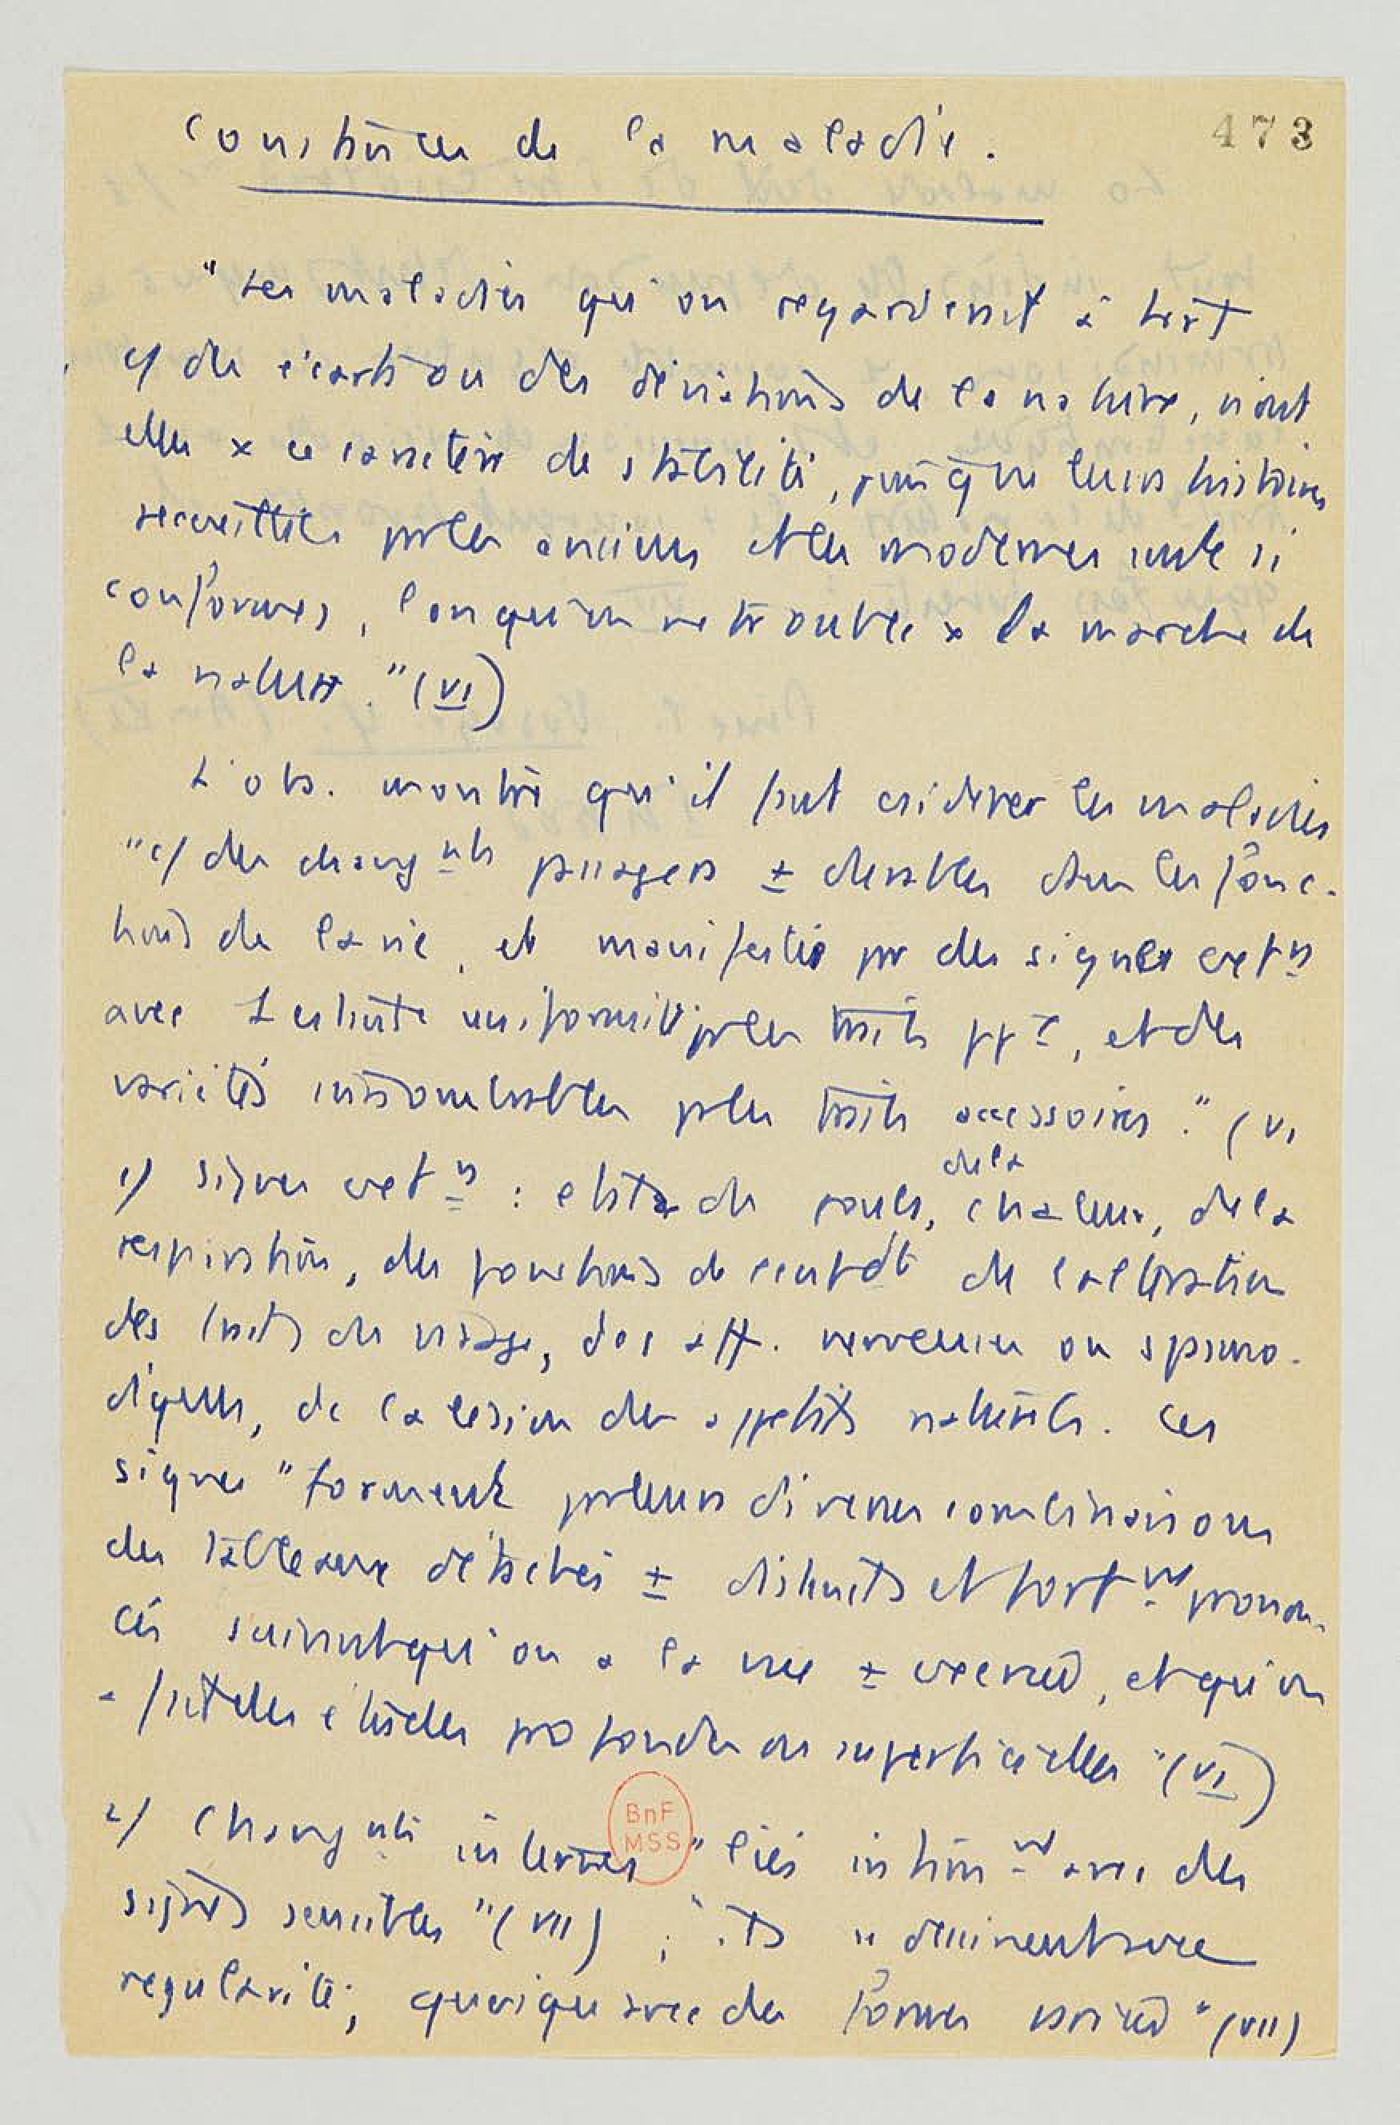 473
de la maladie.
"Les maladies qu'on regardent à tort
c/ des écarts ou des déviations de la nature, n'ont
elles x ce caractère de stabilité, puisque leurs histoires
recueillies par les anciens et les modernes sont si
conformes, lorsqu'on ne trouble x la marche de
la nature." (VI)
L'obs. montre qu'il faut csidérer les maladies
"c/ des changnts passagers ± durables dans les fonc-
tions de la vie, et manifestés par des signes extrs
avec 1 constante uniformité pr les traits ppx, et des
variétés innombrables pr les traits accessoires." (VI
1/ signes extrs : état du pouls, de la chaleur, de la
respiration, des fonctions de l'entdt de l'altération
des traits du visage, des aff. nerveuses ou spasmo-
diques, de la lésion des appétits naturels. Ces
signes "forment par leurs diverses combinaisons
des tableaux détachés ± distincts et fortnt pronon-
cés suivant qu'on a la vue ± exercée, et qu'on
a fait des études profondes ou superficielles" (VI)
2/ Changnts internes "liés intimnt avec des
signes sensibles" (VII) ; ils "
régularité, quoique avec des formes variées" (VII)
BnF
MSS